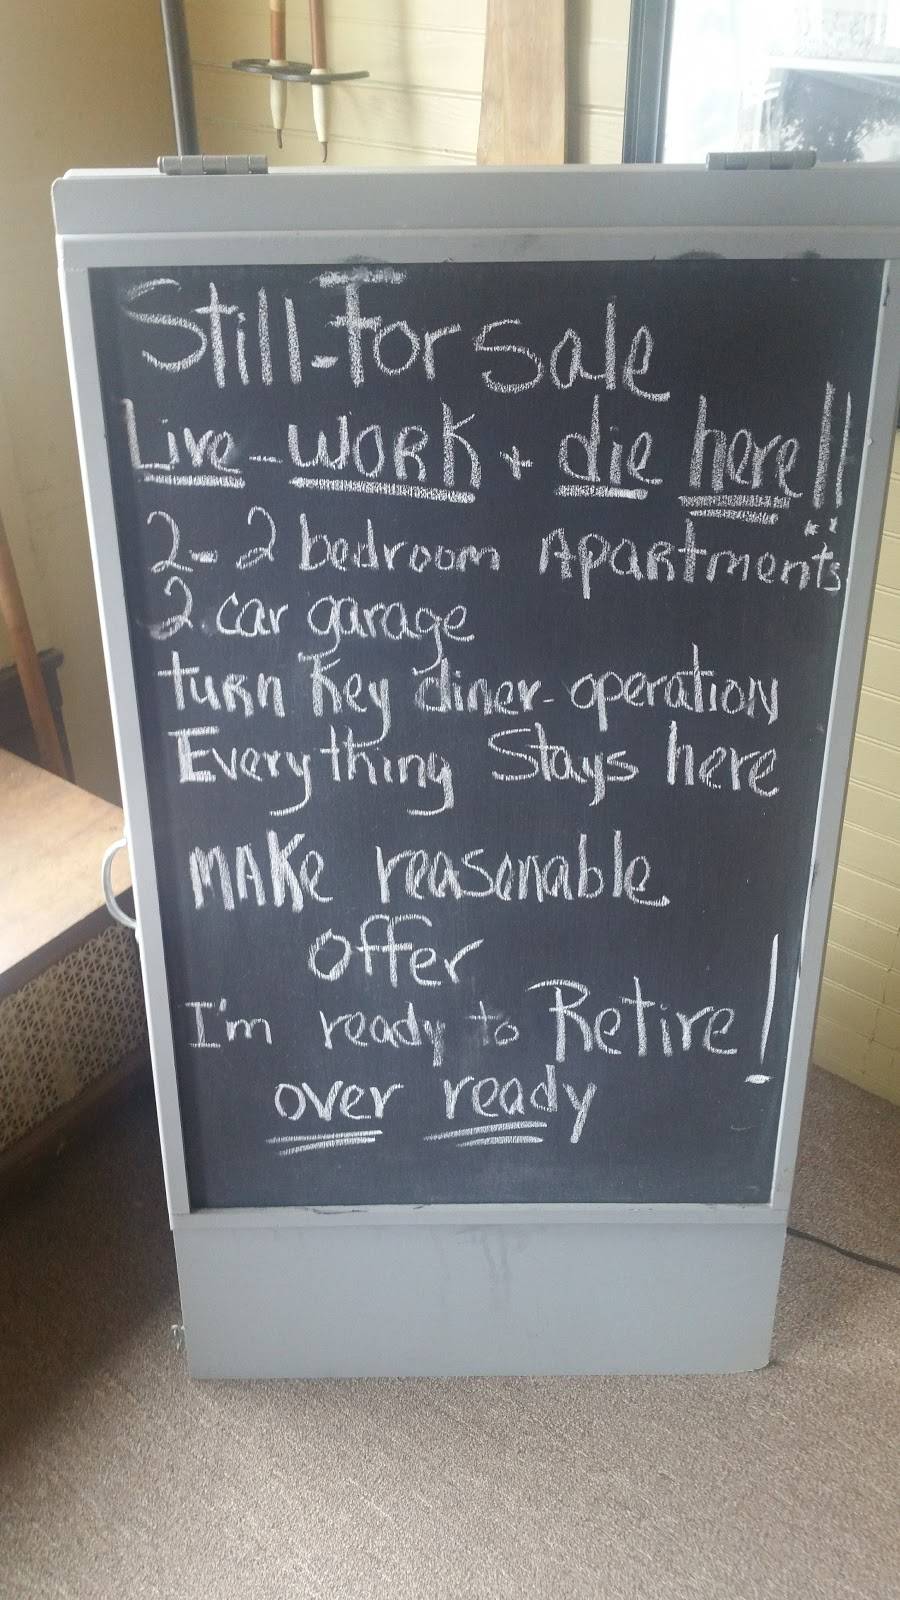 Still-For Sale
Live-WORK + die here!!
2-2 bedroom Apartments
2 car garage
turn Key diner-operation
Everything Stays here
MAKe reasonable
offer
I'm ready to Retire!
over ready